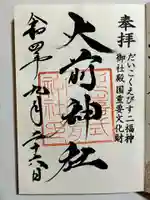 奉拝
だいこくえびす二福神
御社殿国重要文化財
大前神社
令和四年九月二十六日